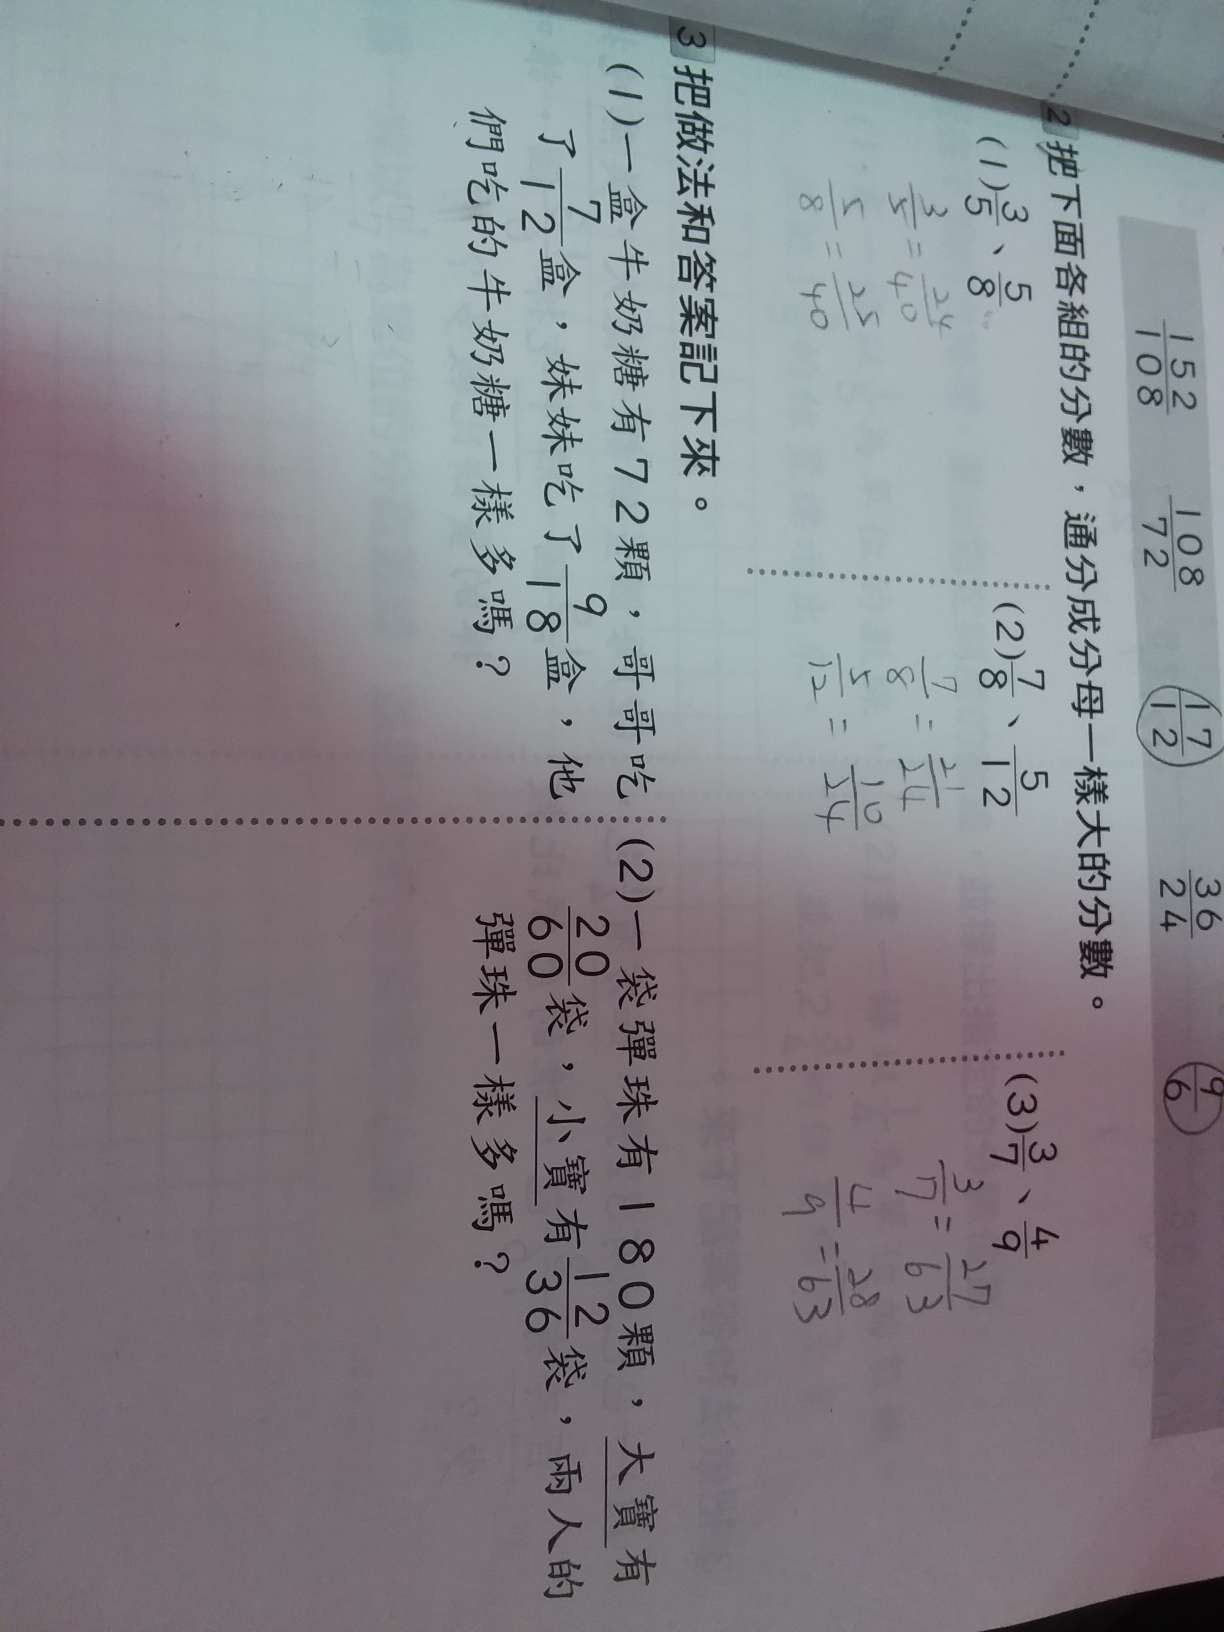 152/108 108/72 17/12 36/24 9/6
2 把下面各組的分數，通分成分母一樣大的分數。
(1) 3/5、5/8 (2) 7/8、5/12 (3) 3/7、4/9
3/5 = 24/40 7/8 = 21/24 3/7 = 27/63
5/8 = 25/40 5/12 = 10/24 4/9 = 28/63
3 把做法和答案記下來。
(1)一盒牛奶糖有72顆，哥哥吃
了7/12盒，妹妹吃了9/18盒，他
們吃的牛奶糖一樣多嗎？
(2)一袋彈珠有180顆，大寶有
20/60袋，小寶有12/36袋，兩人的
彈珠一樣多嗎？